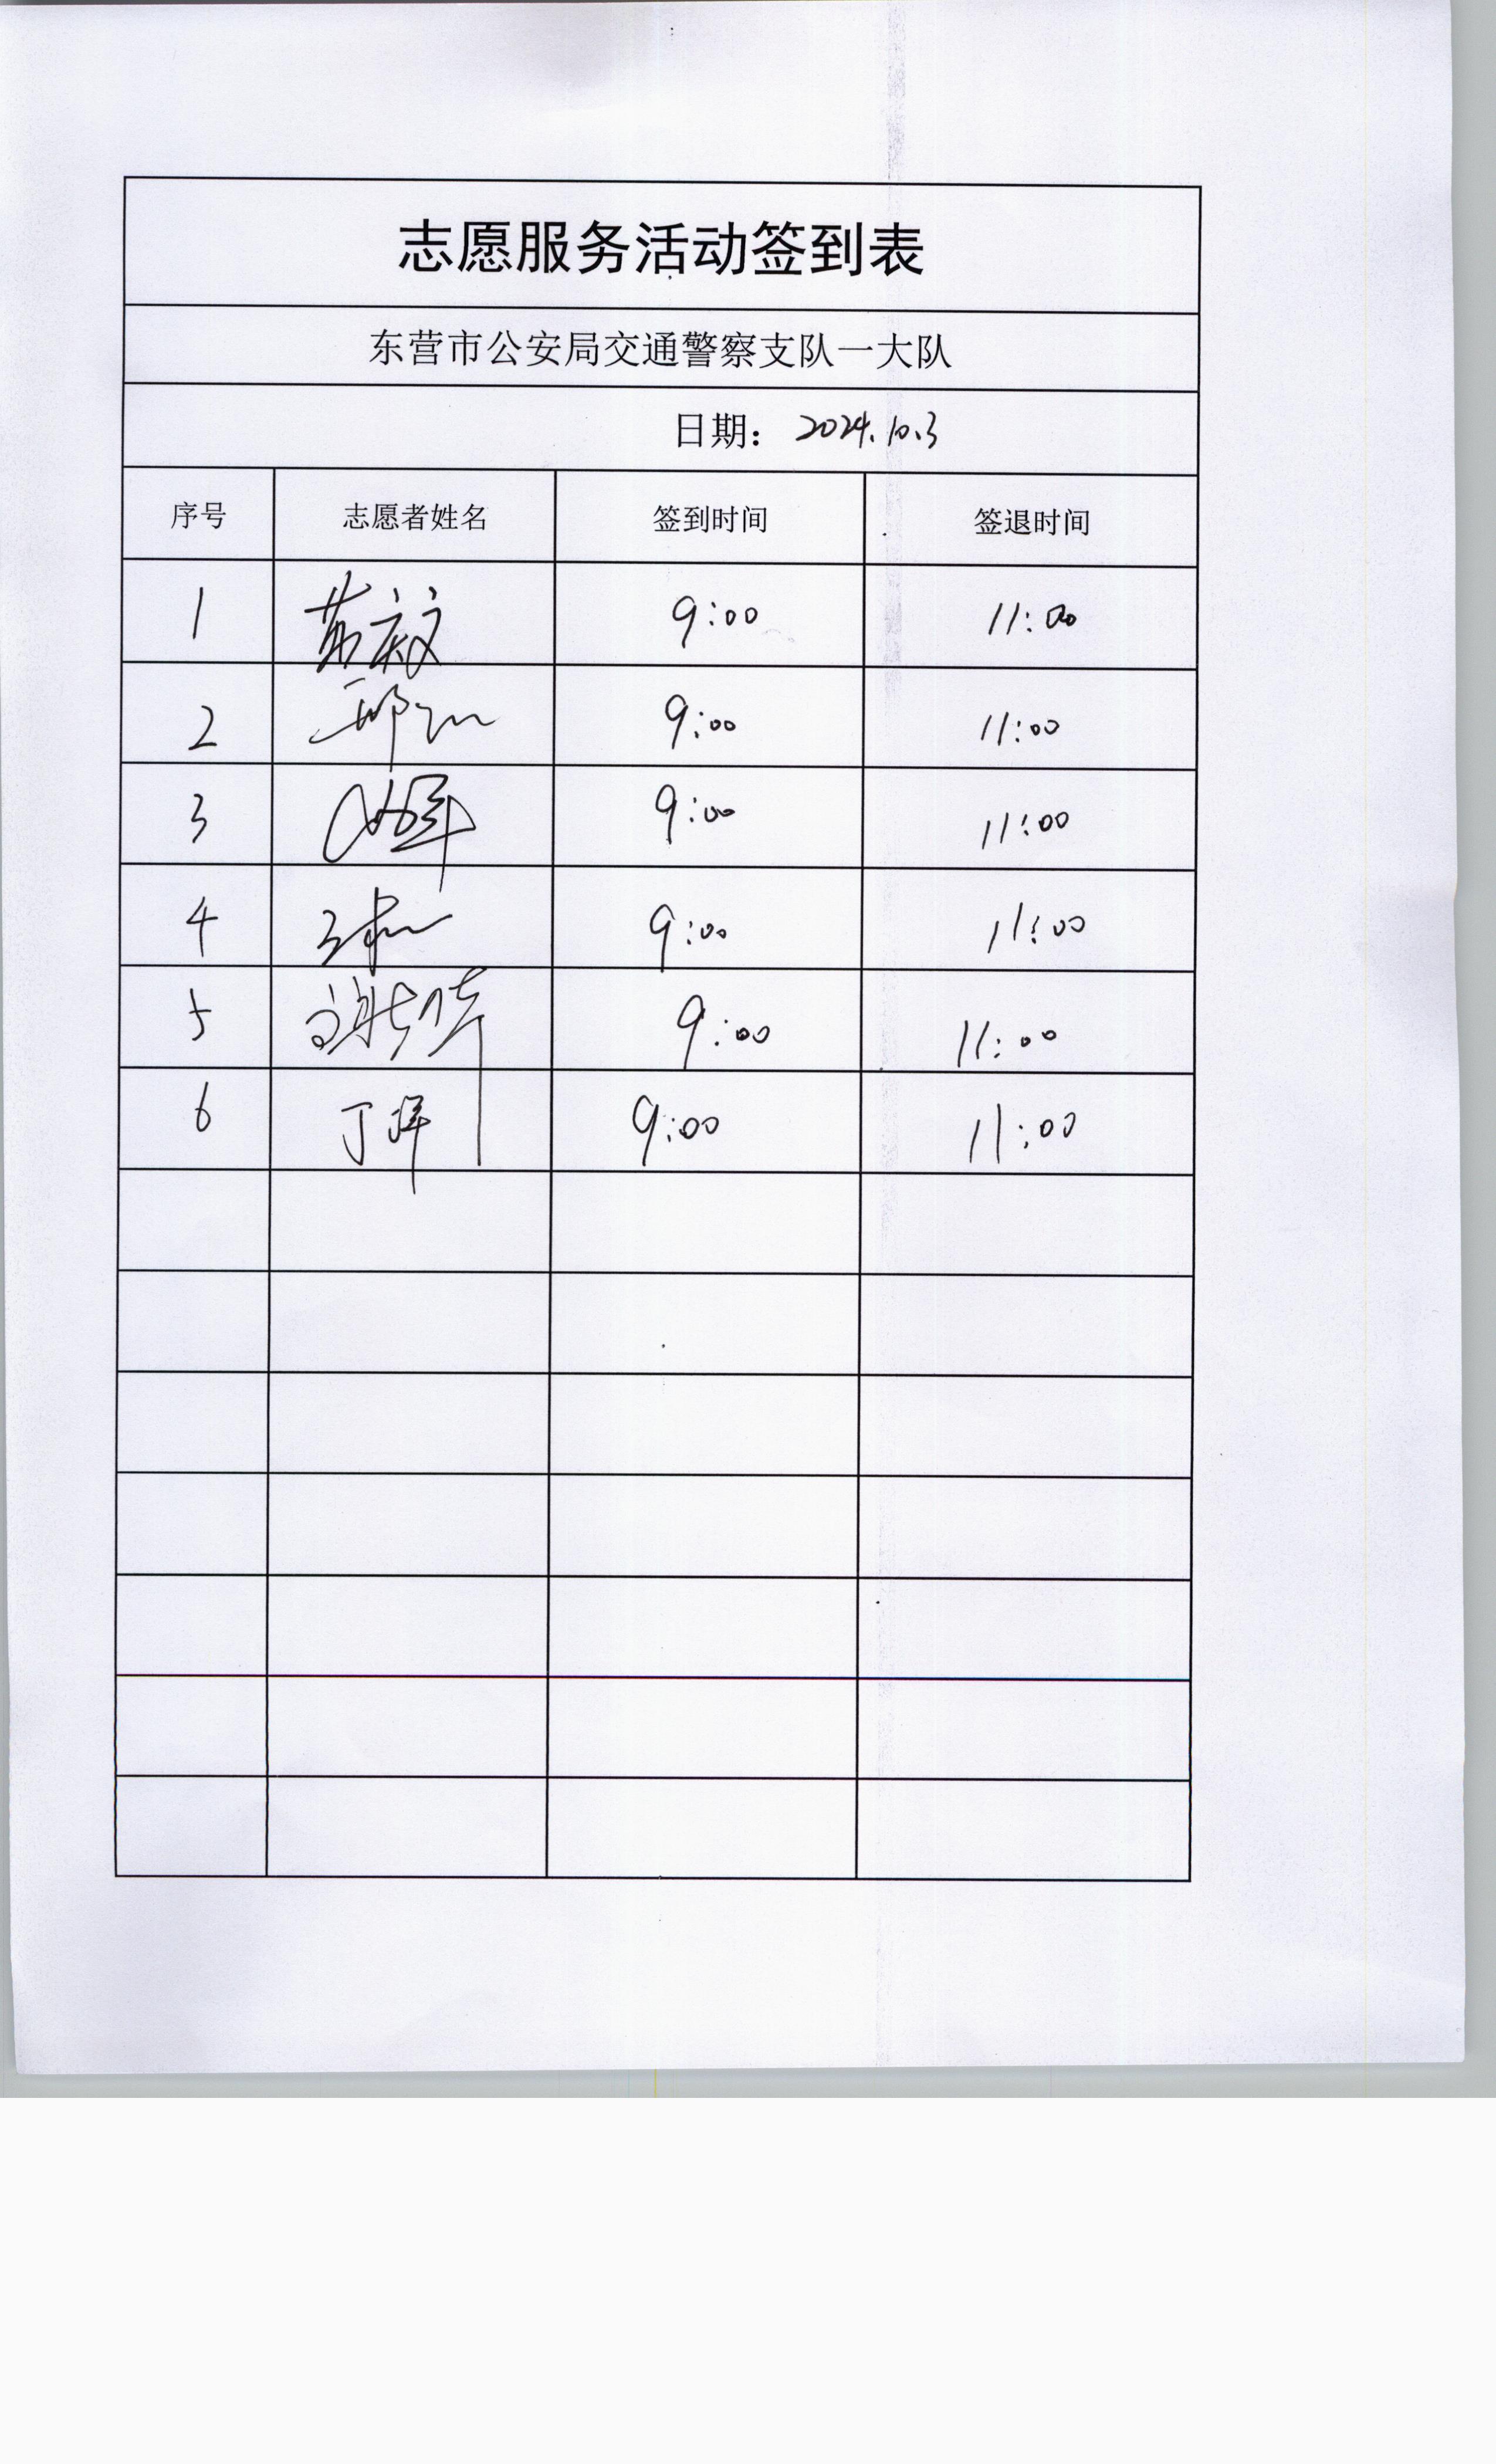 志愿服务活动签到表
东营市公安局交通警察支队一大队
日期： 2024.10.3
序号 志愿者姓名 签到时间 签退时间
1 9:00 11:00
2 9:00 11:00
3 9:00 11:00
4 9:00 11:00
5 9:00 11:00
6 丁 9:00 11:00